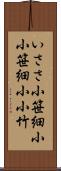 いささ小笹細小
小笹細小小竹